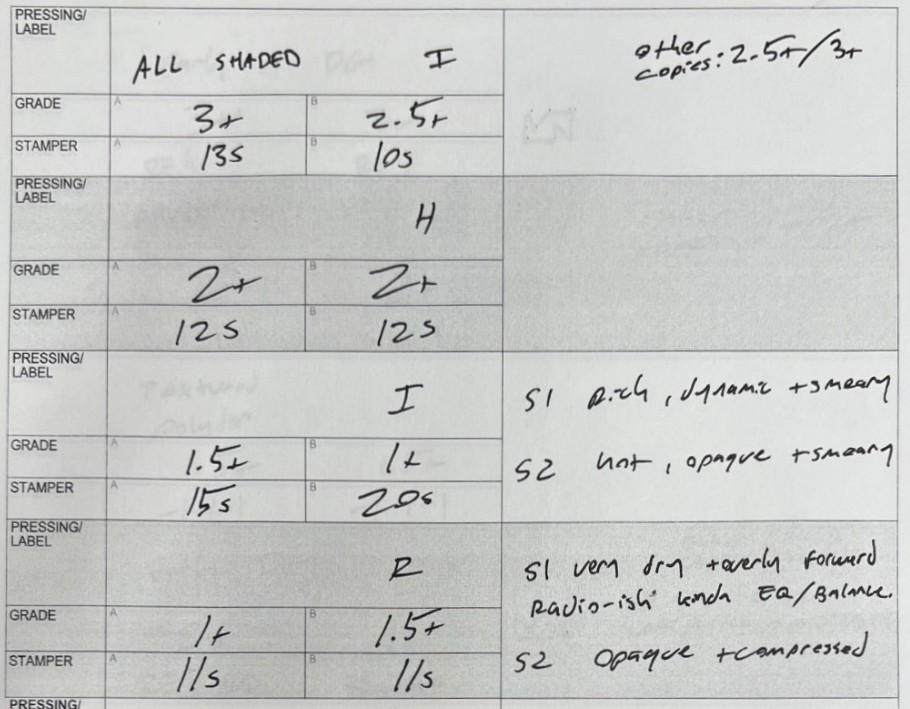 PRESSING/
LABEL
ALL SHADED I
other
copies: 2.5+/3+
GRADE A 3+ B 2.5+
STAMPER A 13s B 10s
PRESSING/
LABEL
H
GRADE A 2+ B 2+
STAMPER A 12s B 12s
PRESSING/
LABEL
I
S1 Rich, dynamic + smeary
GRADE A 1.5+ B 1+
S2 hot, opaque + smeary
STAMPER A 15s B 20s
PRESSING/
LABEL
R
S1 very dry + overly forward
Radio-ish kinda EQ/Balance.
GRADE A 1+ B 1.5+
S2 opaque + compressed
STAMPER A 11s B 11s
PRESSING/